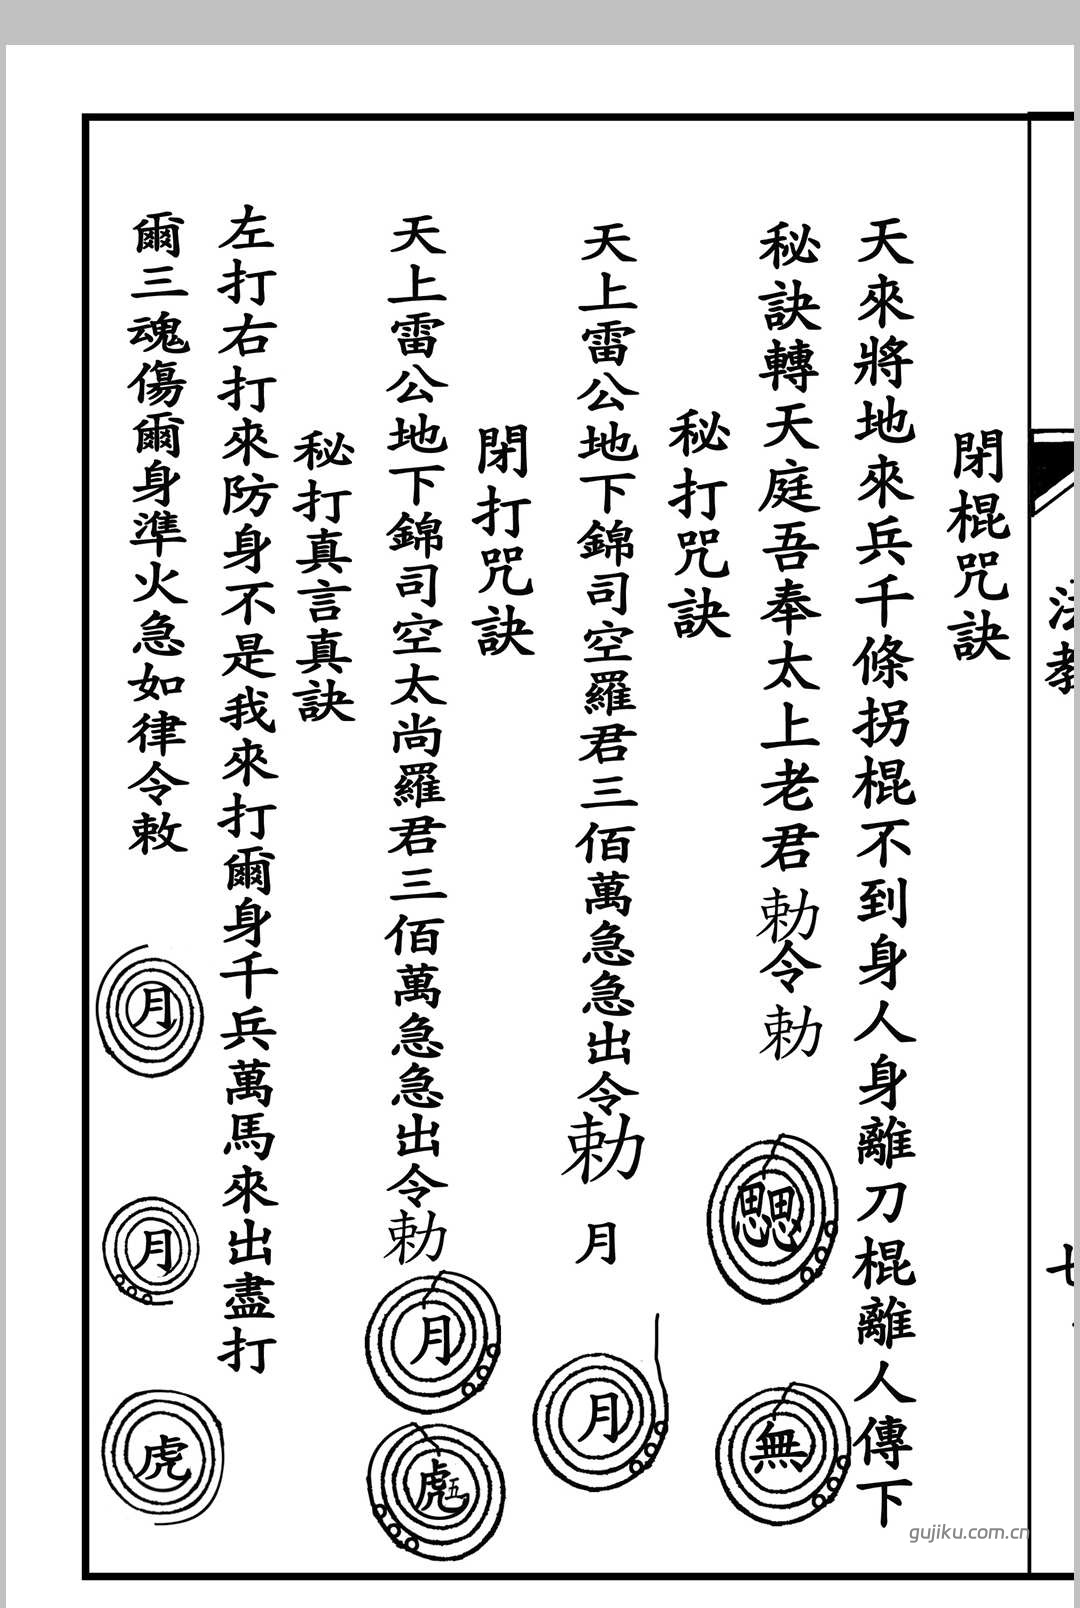 法教
七
閉棍咒訣
天來將地來兵千條拐棍不到身人身離刀棍離人傳下
秘訣轉天庭吾奉太上老君勅令勅
無
秘打咒訣
天上雷公地下錦司空羅君三佰萬急急出令勅 月
月
閉打咒訣
天上雷公地下錦司空太尚羅君三佰萬急急出令勅
月
秘打真言真訣
左打右打來防身不是我來打爾身千兵萬馬來出盡打
爾三魂傷爾身準火急如律令敕
月
月
虎
gujiku.com.cn